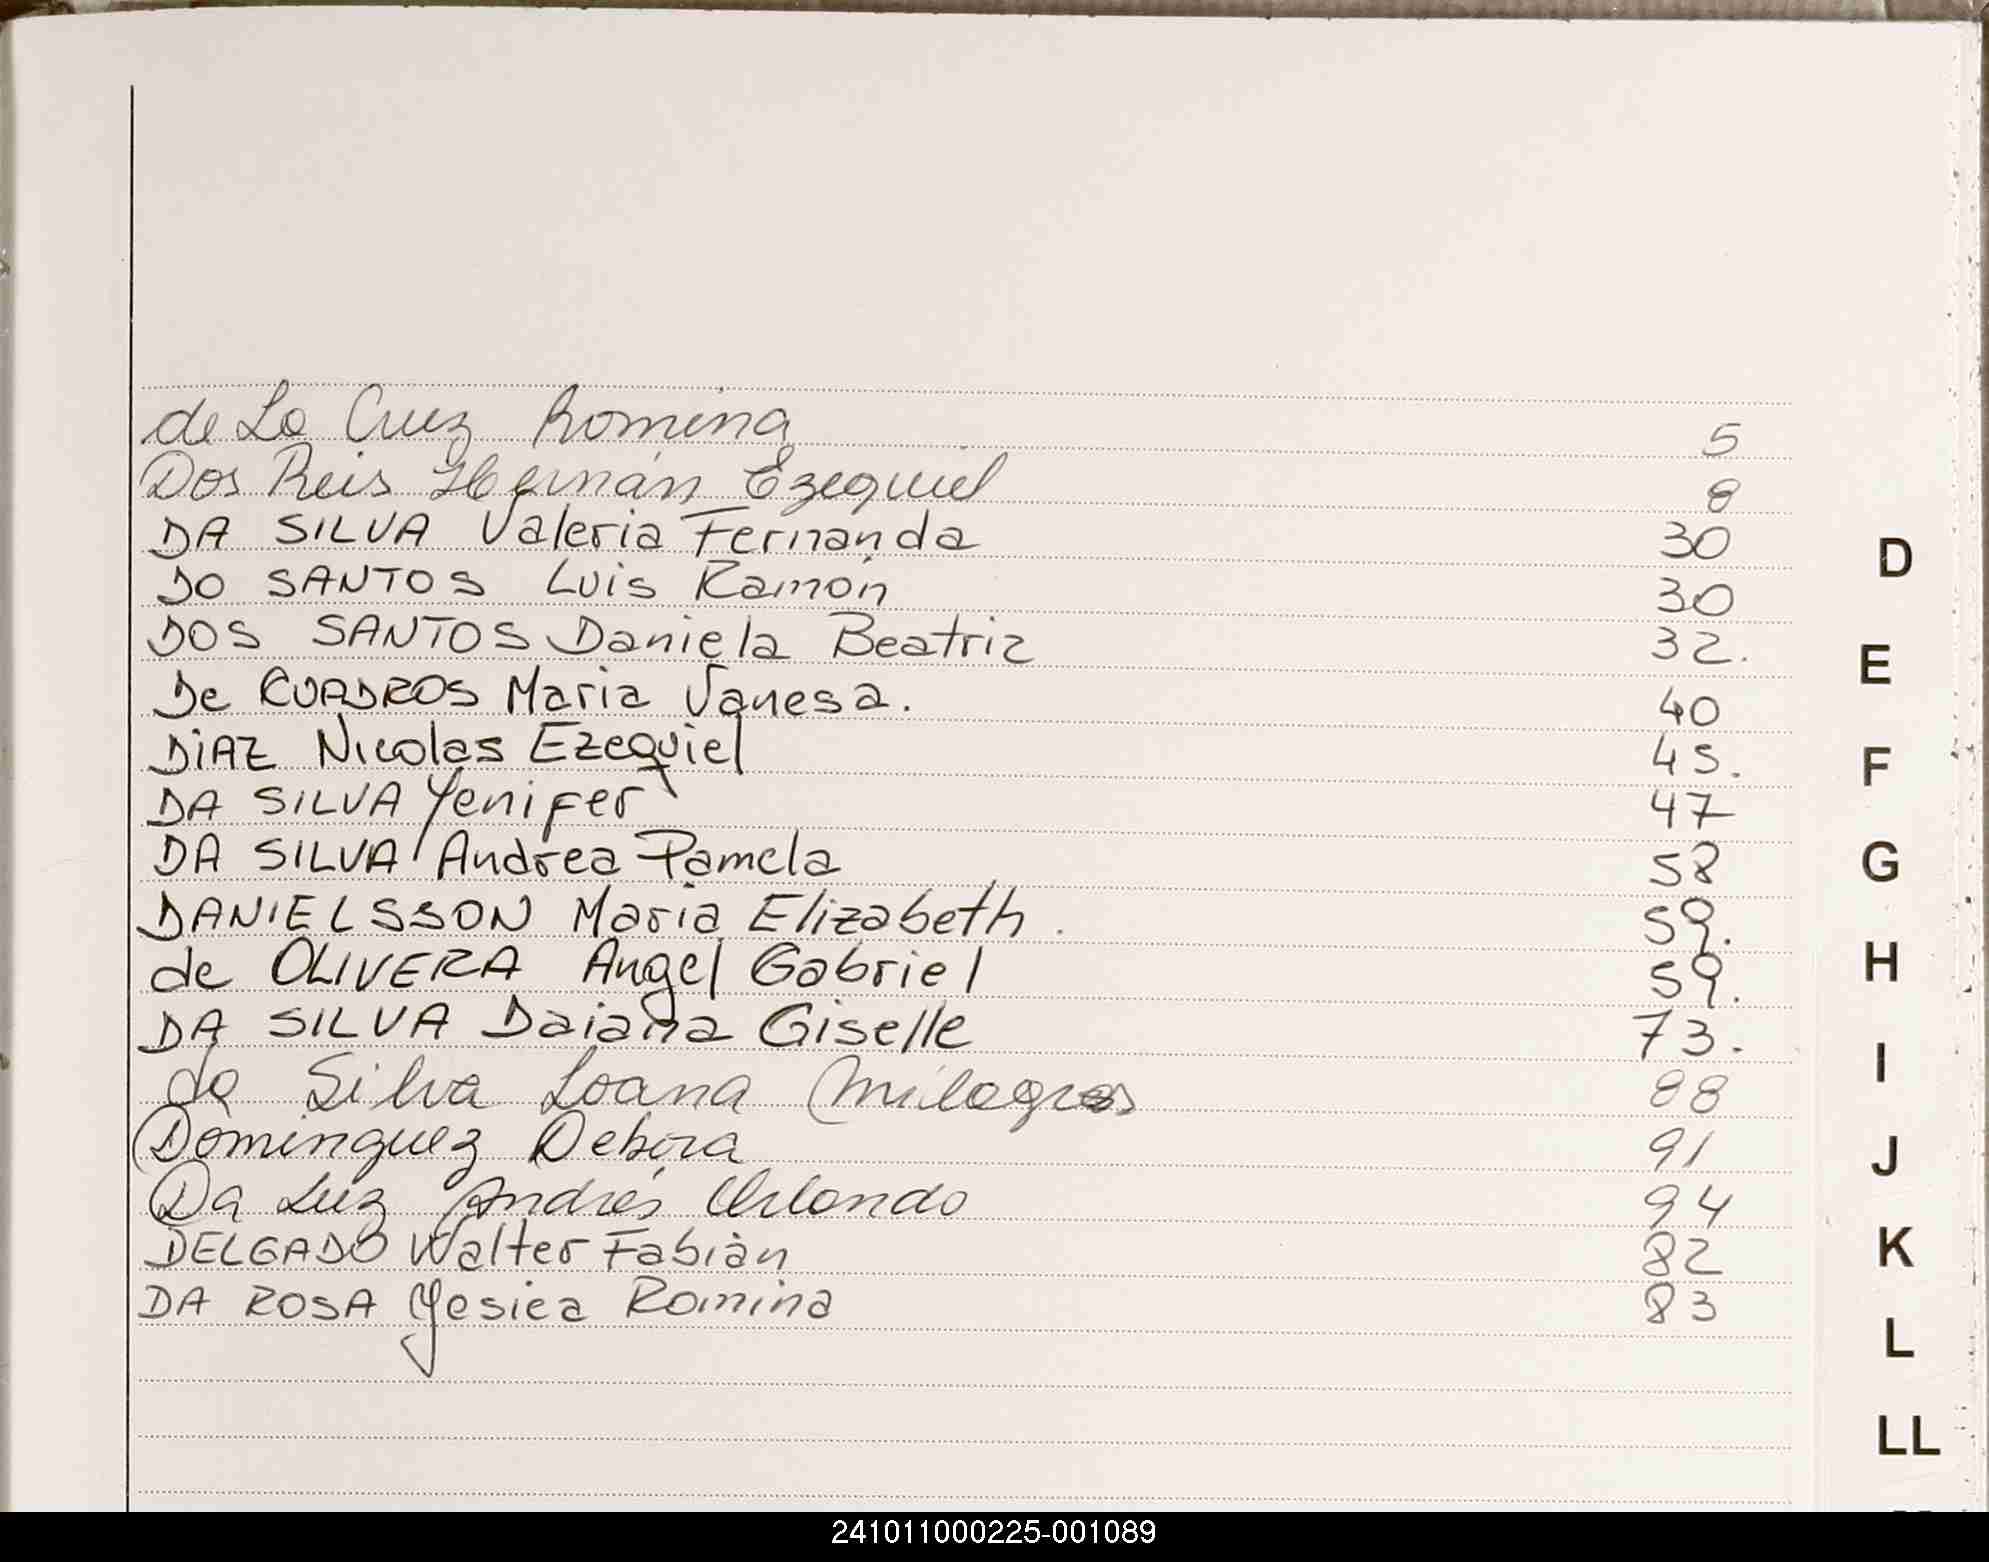 de La Cruz Romina 5
Dos Reis Hernán Ezequiel 8
DA SILVA Valeria Fernanda 30
DO SANTOS Luis Ramón 30
DOS SANTOS Daniela Beatriz 32.
De CUADROS Maria Vanesa. 40
DiAZ Nicolas Ezequiel 45.
DA SILVA Yenifer 47
DA SILVA Andrea Pamela 58
DANIELSSON Maria Elizabeth. 59.
de OLIVERA Angel Gabriel 59.
DA SILVA Daiana Giselle 73.
da Silva Loana Milagros 88
Dominguez Debora 91
Da Luz Andrés Orlando 94
DELGADO Walter Fabián 82
DA ROSA Yesica Romina 83
D
E
F
G
H
I
J
K
L
LL
241011000225-001089